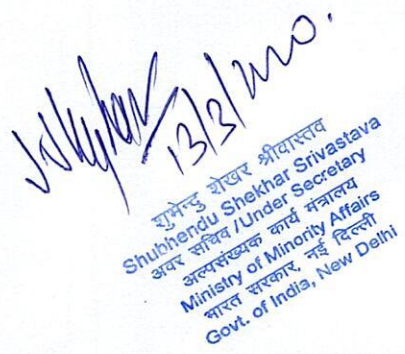 13/3/2020.
शुभेन्दु शेखर श्रीवास्तव
Shubhendu Shekhar Srivastava
अवर सचिव /Under Secretary
अल्पसंख्यक कार्य मंत्रालय
Ministry of Minority Affairs
भारत सरकार, नई दिल्ली
Govt. of India, New Delhi